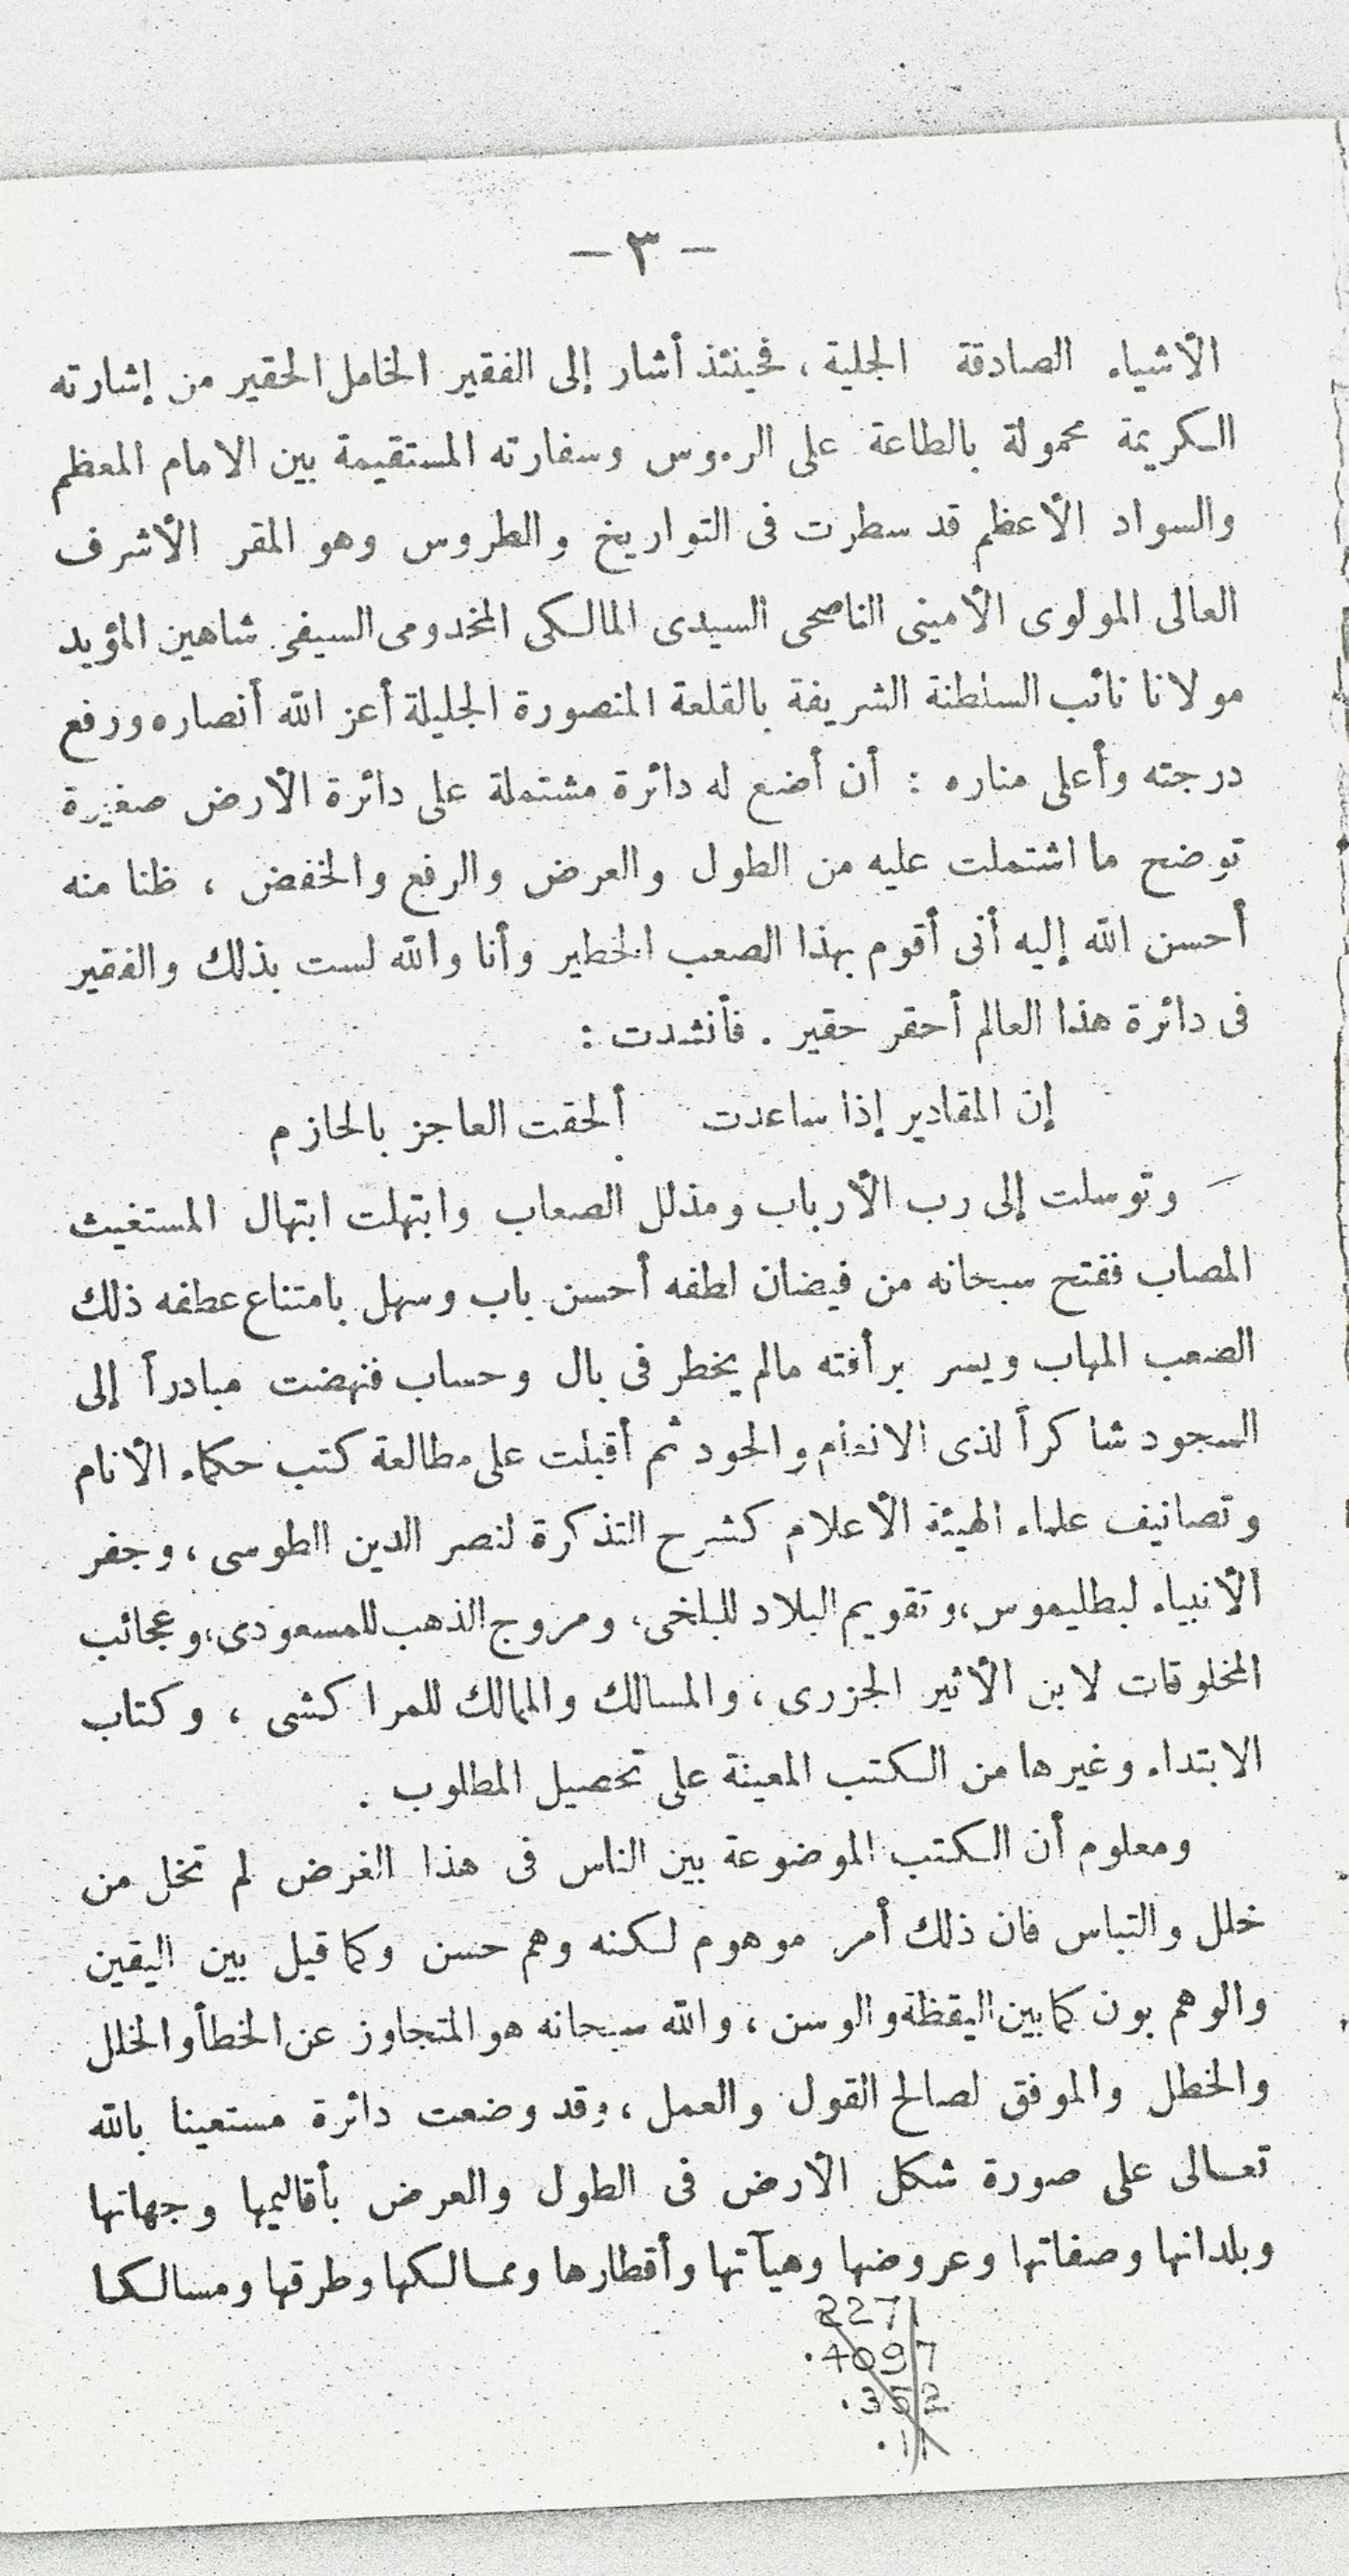 - ٣ -
الأشياء الصادقة الجلية ، فحينئذ أشار إلى الفقير الخامل الحقير من إشارته
الكريمة محمولة بالطاعة على الرءوس وسفارته المستقيمة بين الامام المعظم
والسواد الأعظم قد سطرت فى التواريخ والطروس وهو المقر الأشرف
العالى المولوى الأمينى الناصحى السيدى المالكى المخدومى السيفى شاهين المؤيد
مولانا نائب السلطنة الشريفة بالقلعة المنصورة الجليلة أعز الله أنصاره ورفع
درجته وأعلى مناره : أن أضع له دائرة مشتملة على دائرة الأرض صغيرة
توضح ما اشتملت عليه من الطول والعرض والرفع والخفض ، ظنا منه
أحسن الله إليه أنى أقوم بهذا الصعب الخطير وأنا والله لست بذلك والفقير
فى دائرة هذا العالم أحقر حقير . فأنشدت :
إن المقادير إذا ساعدت ألحقت العاجز بالحازم
وتوسلت إلى رب الأرباب ومذلل الصعاب وابتهلت ابتهال المستغيث
المصاب ففتح سبحانه من فيضان لطفه أحسن باب وسهل بامتناع عطفه ذلك
الصعب المهاب ويسر برأفته مالم يخطر فى بال وحساب فنهضت مبادراً إلى
السجود شاكراً لذى الانعام والجود ثم أقبلت على مطالعة كتب حكماء الأنام
وتصانيف علماء الهيئة الأعلام كشرح التذكرة لنصر الدين الطوسى ، وجفر
الأنبياء لبطليموس ، وتقويم البلاد للبلخى ، ومروج الذهب للمسعودى ، وعجائب
المخلوقات لابن الأثير الجزرى ، والمسالك والممالك للمراكشى ، وكتاب
الابتداء وغيرها من الكتب المعينة على تحصيل المطلوب .
ومعلوم أن الكتب الموضوعة بين الناس فى هذا الغرض لم تخل من
خلل والتباس فان ذلك أمر موهوم لكنه وهم حسن وكما قيل بين اليقين
والوهم بون كما بين اليقظة والوسن ، والله سبحانه هو المتجاوز عن الخطأ والخلل
والخطل والموفق لصالح القول والعمل ، وقد وضعت دائرة مستعينا بالله
تعالى على صورة شكل الأرض فى الطول والعرض بأقاليمها وجهاتها
وبلدانها وصفاتها وعروضها وهيآتها وأقطارها وممالكها وطرقها ومسالكها
2271
.4097
.352
.11